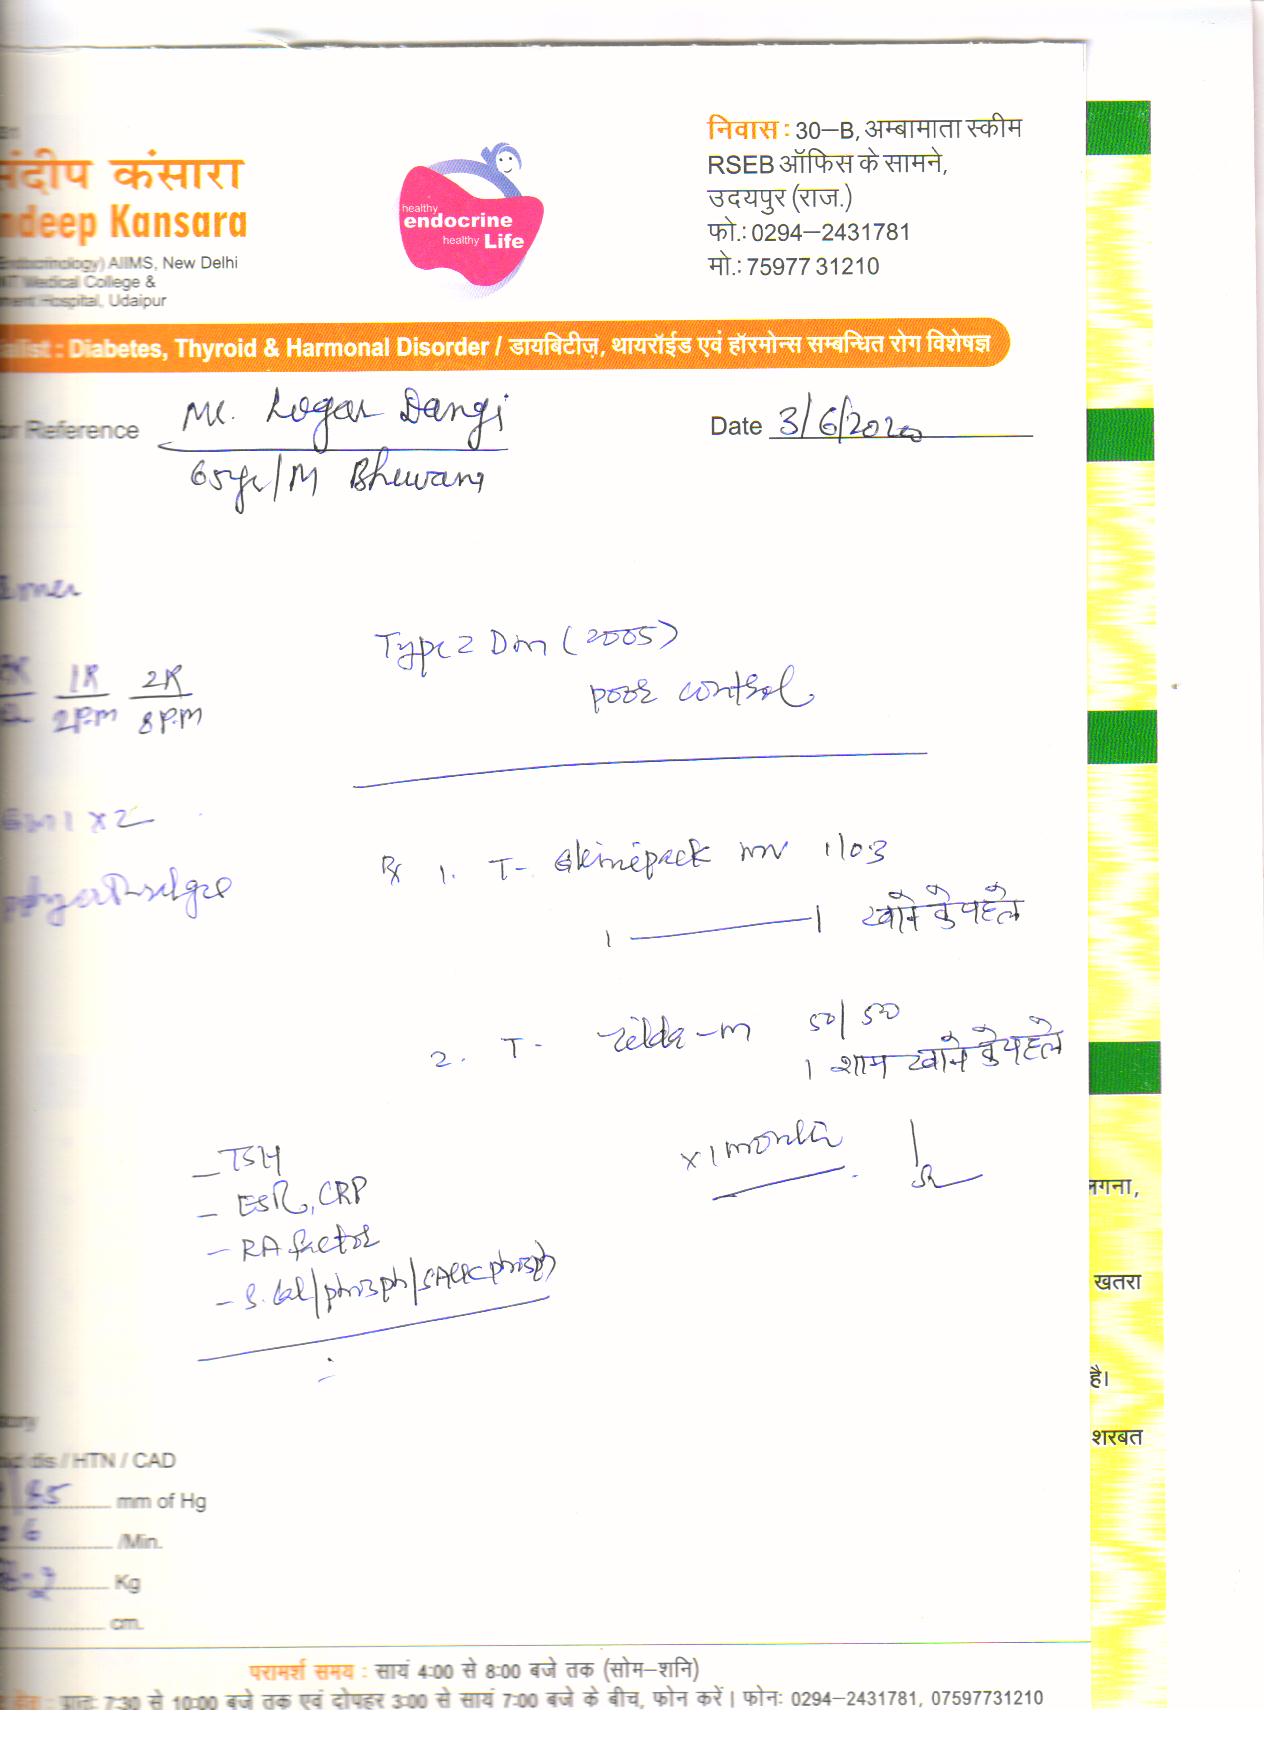 संदीप कंसारा
ndeep Kansara
Endocrinology) AIIMS, New Delhi
Medical College &
Hospital, Udaipur
healthy
endocrine
healthy Life
निवास : 30–B, अम्बामाता स्कीम
RSEB ऑफिस के सामने,
उदयपुर (राज.)
फो.: 0294–2431781
मो.: 75977 31210
alist : Diabetes, Thyroid & Harmonal Disorder / डायबिटीज़, थायरॉईड एवं हॉरमोन्स सम्बन्धित रोग विशेषज्ञ
or Reference Mr. Logar Dangi
Date 3/6/2020
65yr/M Bhuwana
Type 2 Dm (2005)
poor control
1R 2R
2P.M 8P.M
X 2
Rx 1. T- Glimipack mv 1/03
1 ——— 1 खाने के पहले
2. T- Zilda-m 50/50
1 शाम खाने के पहले
x 1 month
- TSH
- ESR, CRP
- RA factor
- S. Cal/phosph/SAlk phosph
लगना,
खतरा
है।
शरबत
dis / HTN / CAD
/85 mm of Hg
6 /Min.
-2 Kg
cm.
परामर्श समय : सायं 4:00 से 8:00 बजे तक (सोम–शनि)
हेतु : प्रातः 7:30 से 10:00 बजे तक एवं दोपहर 3:00 से सायं 7:00 बजे के बीच, फोन करें। फोनः 0294–2431781, 07597731210